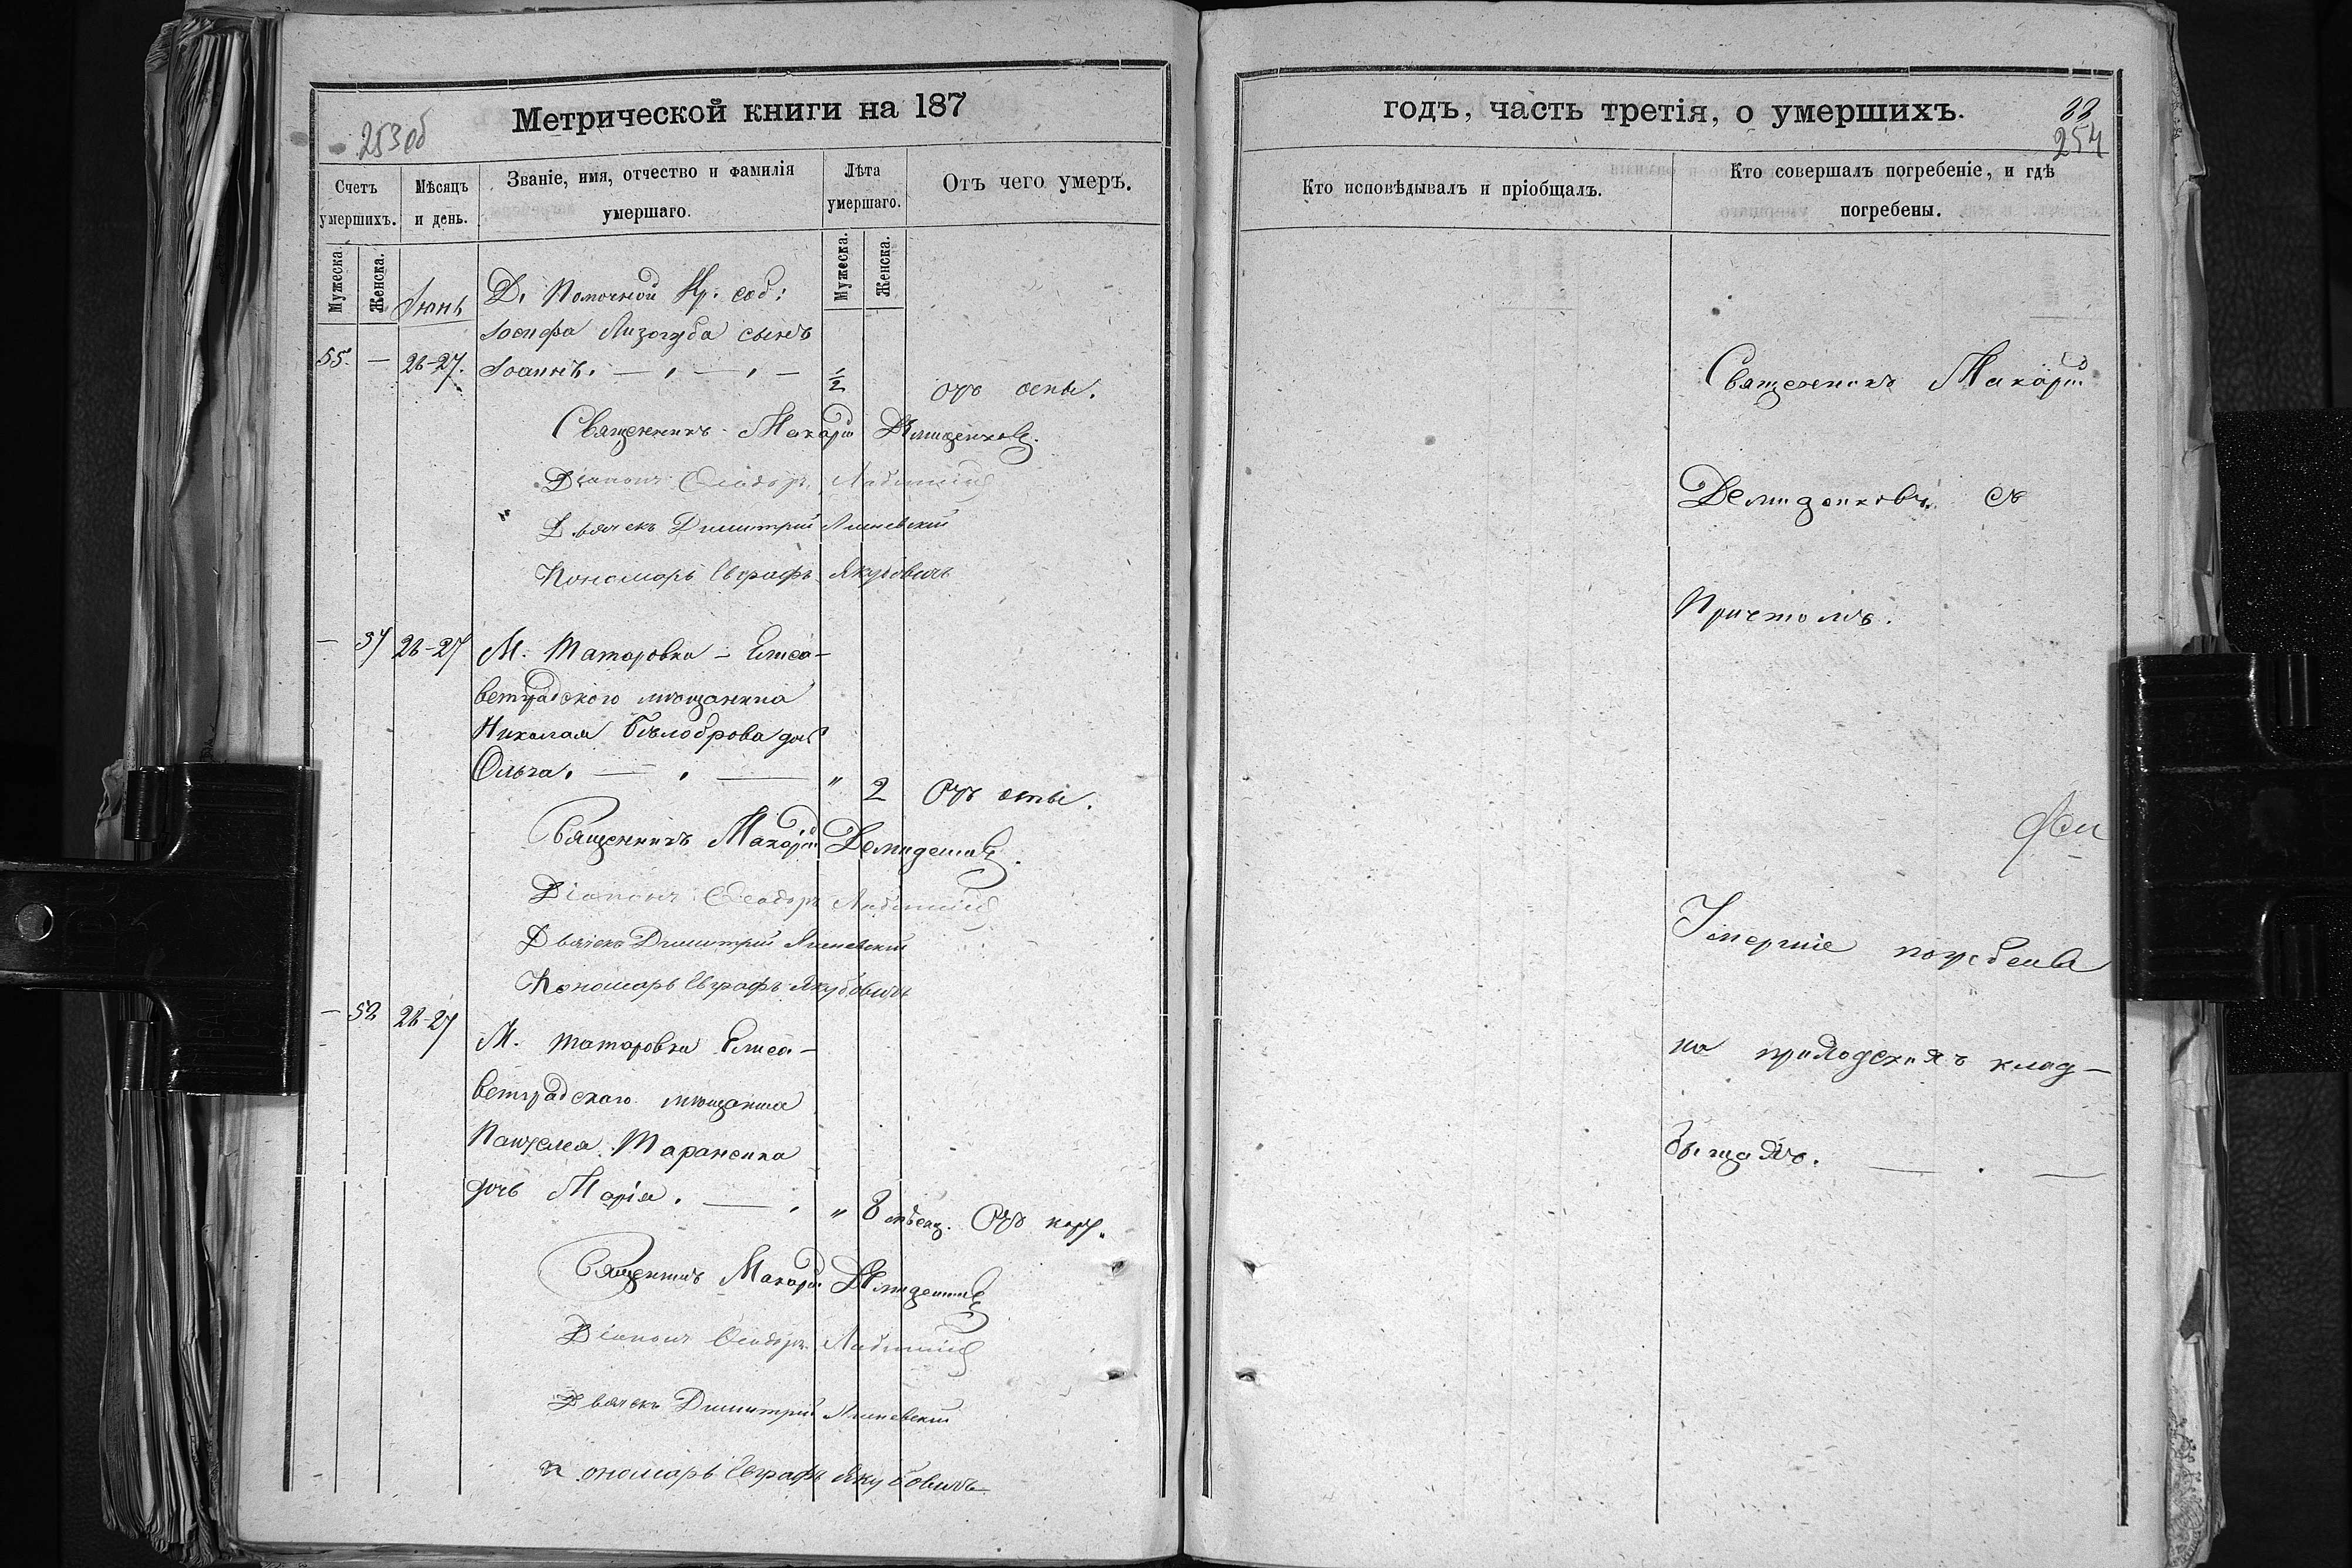 253об
Метрической книги на 187
Счетъ умершихъ.
Мѣсяцъ и день.
Званіе, имя, отчество и фамилія умершаго.
Лѣта умершаго.
Отъ чего умеръ.
Мужеска.
Женска.
Мужеска.
Женска.
Іюнь
Д. Помочной Кр. соб:
Іосифа Лизогуба сынъ
55. — 26-27. Іоаннъ. — , — , — 1/2 отъ оспы.
Священникъ Макарій Демиденковъ.
Діаконъ Ѳеодоръ
Дьячекъ Димитрій
Пономарь Евграфъ Якубовичъ
— 57 26-27 М. Татаровка - Елиса-
ветградского мѣщанина
Николая Бѣлоброва дочь
Ольга. — , — " 2 Отъ оспы.
Священникъ Макарій Демиденковъ.
Діаконъ Ѳеодоръ
Дьячекъ Димитрій
Пономарь Евграфъ Якубовичъ
— 58 26-27 М. Татаровки Елиса-
ветградского мѣщанина
Пантелея Тараненка
дочь Марія. — , " 8 мѣсяц. Отъ кору.
Священникъ Макарій Демиденковъ
Діаконъ Ѳеодоръ
Дьячекъ Димитрій
Пономарь Евграфъ Якубовичъ
годъ, часть третія, о умершихъ.
88
254
Кто исповѣдывалъ и пріобщалъ.
Кто совершалъ погребеніе, и гдѣ погребены.
Священникъ Макарій
Демиденковъ съ
Причтомъ.
Умершіе погребены
на приходскихъ клад-
бищахъ. — . —